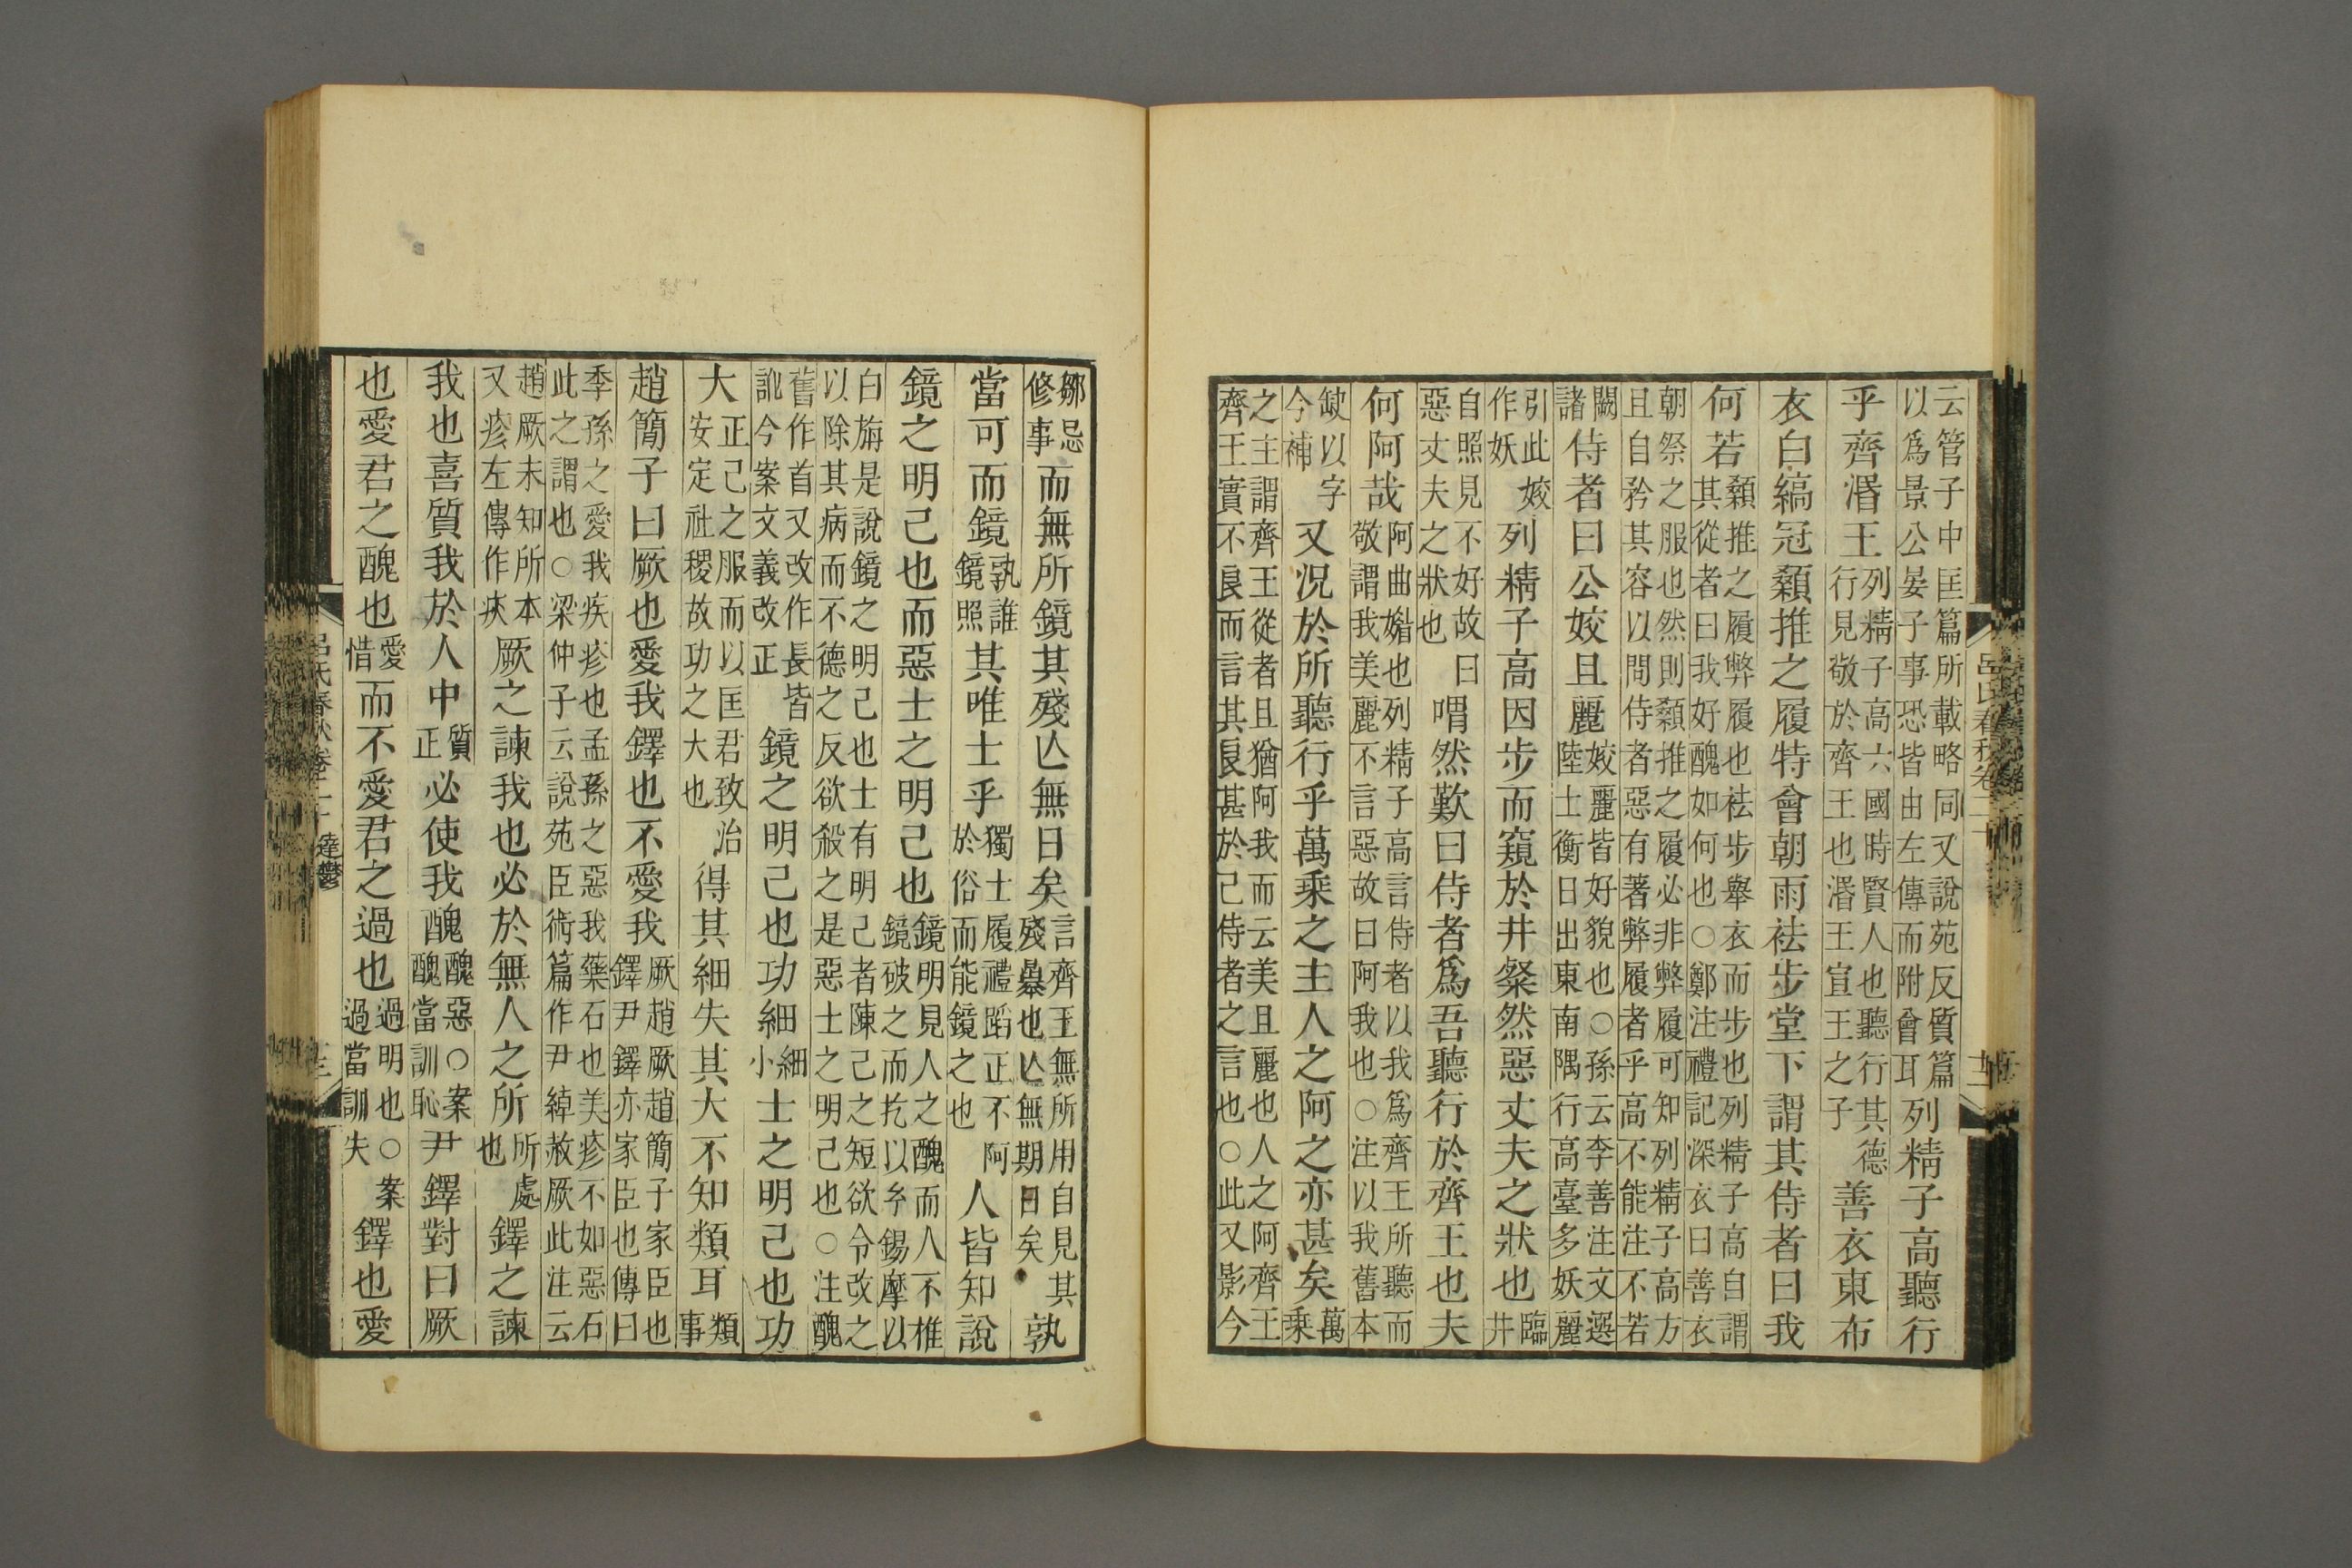 呂氏春秋卷二十
云管子中匡篇所載略同又說苑反質篇以爲景公晏子事恐皆由左傳而附會耳列精子高聽行
乎齊湣王列精子高六國時賢人也聽行其德行見敬於齊王也湣王宣王之子善衣東布
衣白縞冠顙推之履特會朝雨袪步堂下謂其侍者曰我
何若顙推之履弊履也袪步舉衣而步也列精子高自謂其從者曰我好醜如何也○鄭注禮記深衣曰善衣
朝祭之服也然則顙推之履必非弊履可知列精子高方且自矜其容以問侍者惡有著弊履者乎高不能注不若
闕諸侍者曰公姣且麗姣麗皆好貌也○孫云李善注文選陸士衡日出東南隅行高臺多妖麗
引此姣作妖列精子高因步而窺於井粲然惡丈夫之狀也臨井
自照見不好故曰惡丈夫之狀也喟然歎曰侍者爲吾聽行於齊王也夫
何阿哉阿曲媚也列精子高言侍者以我爲齊王所聽而敬謂我美麗不言惡故曰阿我也○注以我舊本
缺以字今補又況於所聽行乎萬乘之主人之阿之亦甚矣萬乘
之主謂齊王從者且猶阿我而云美且麗也人之阿齊王齊王實不良而言其良甚於己侍者之言也○此又影今
鄒忌修事而無所鏡其殘亾無日矣言齊王無所用自見其殘暴也亾無期日矣孰
當可而鏡孰誰鏡照其唯士乎獨士履禮蹈正不阿於俗而能鏡之也人皆知說
鏡之明己也而惡士之明己也鏡明見人之醜而人不椎鏡破之而扢以玄錫摩以
白旃是說鏡之明己也士有明己者陳己之短欲令改之以除其病而不德之反欲殺之是惡士之明己也○注醜
舊作首又改作長皆訛今案文義改正鏡之明己也功細細小士之明己也功
大正己之服而以匡君致治安定社稷故功之大也得其細失其大不知類耳類事
趙簡子曰厥也愛我鐸也不愛我厥趙厥趙簡子家臣也鐸尹鐸亦家臣也傳曰
季孫之愛我疾疹也孟孫之惡我藥石也美疹不如惡石此之謂也○梁仲子云說苑臣術篇作尹綽赦厥此注云
趙厥未知所本又疹左傳作疢厥之諫我也必於無人之所所處也鐸之諫
我也喜質我於人中質正必使我醜醜惡○案醜當訓恥尹鐸對曰厥
也愛君之醜也愛惜而不愛君之過也過明也○案過當訓失鐸也愛
呂氏春秋卷二十 達鬱